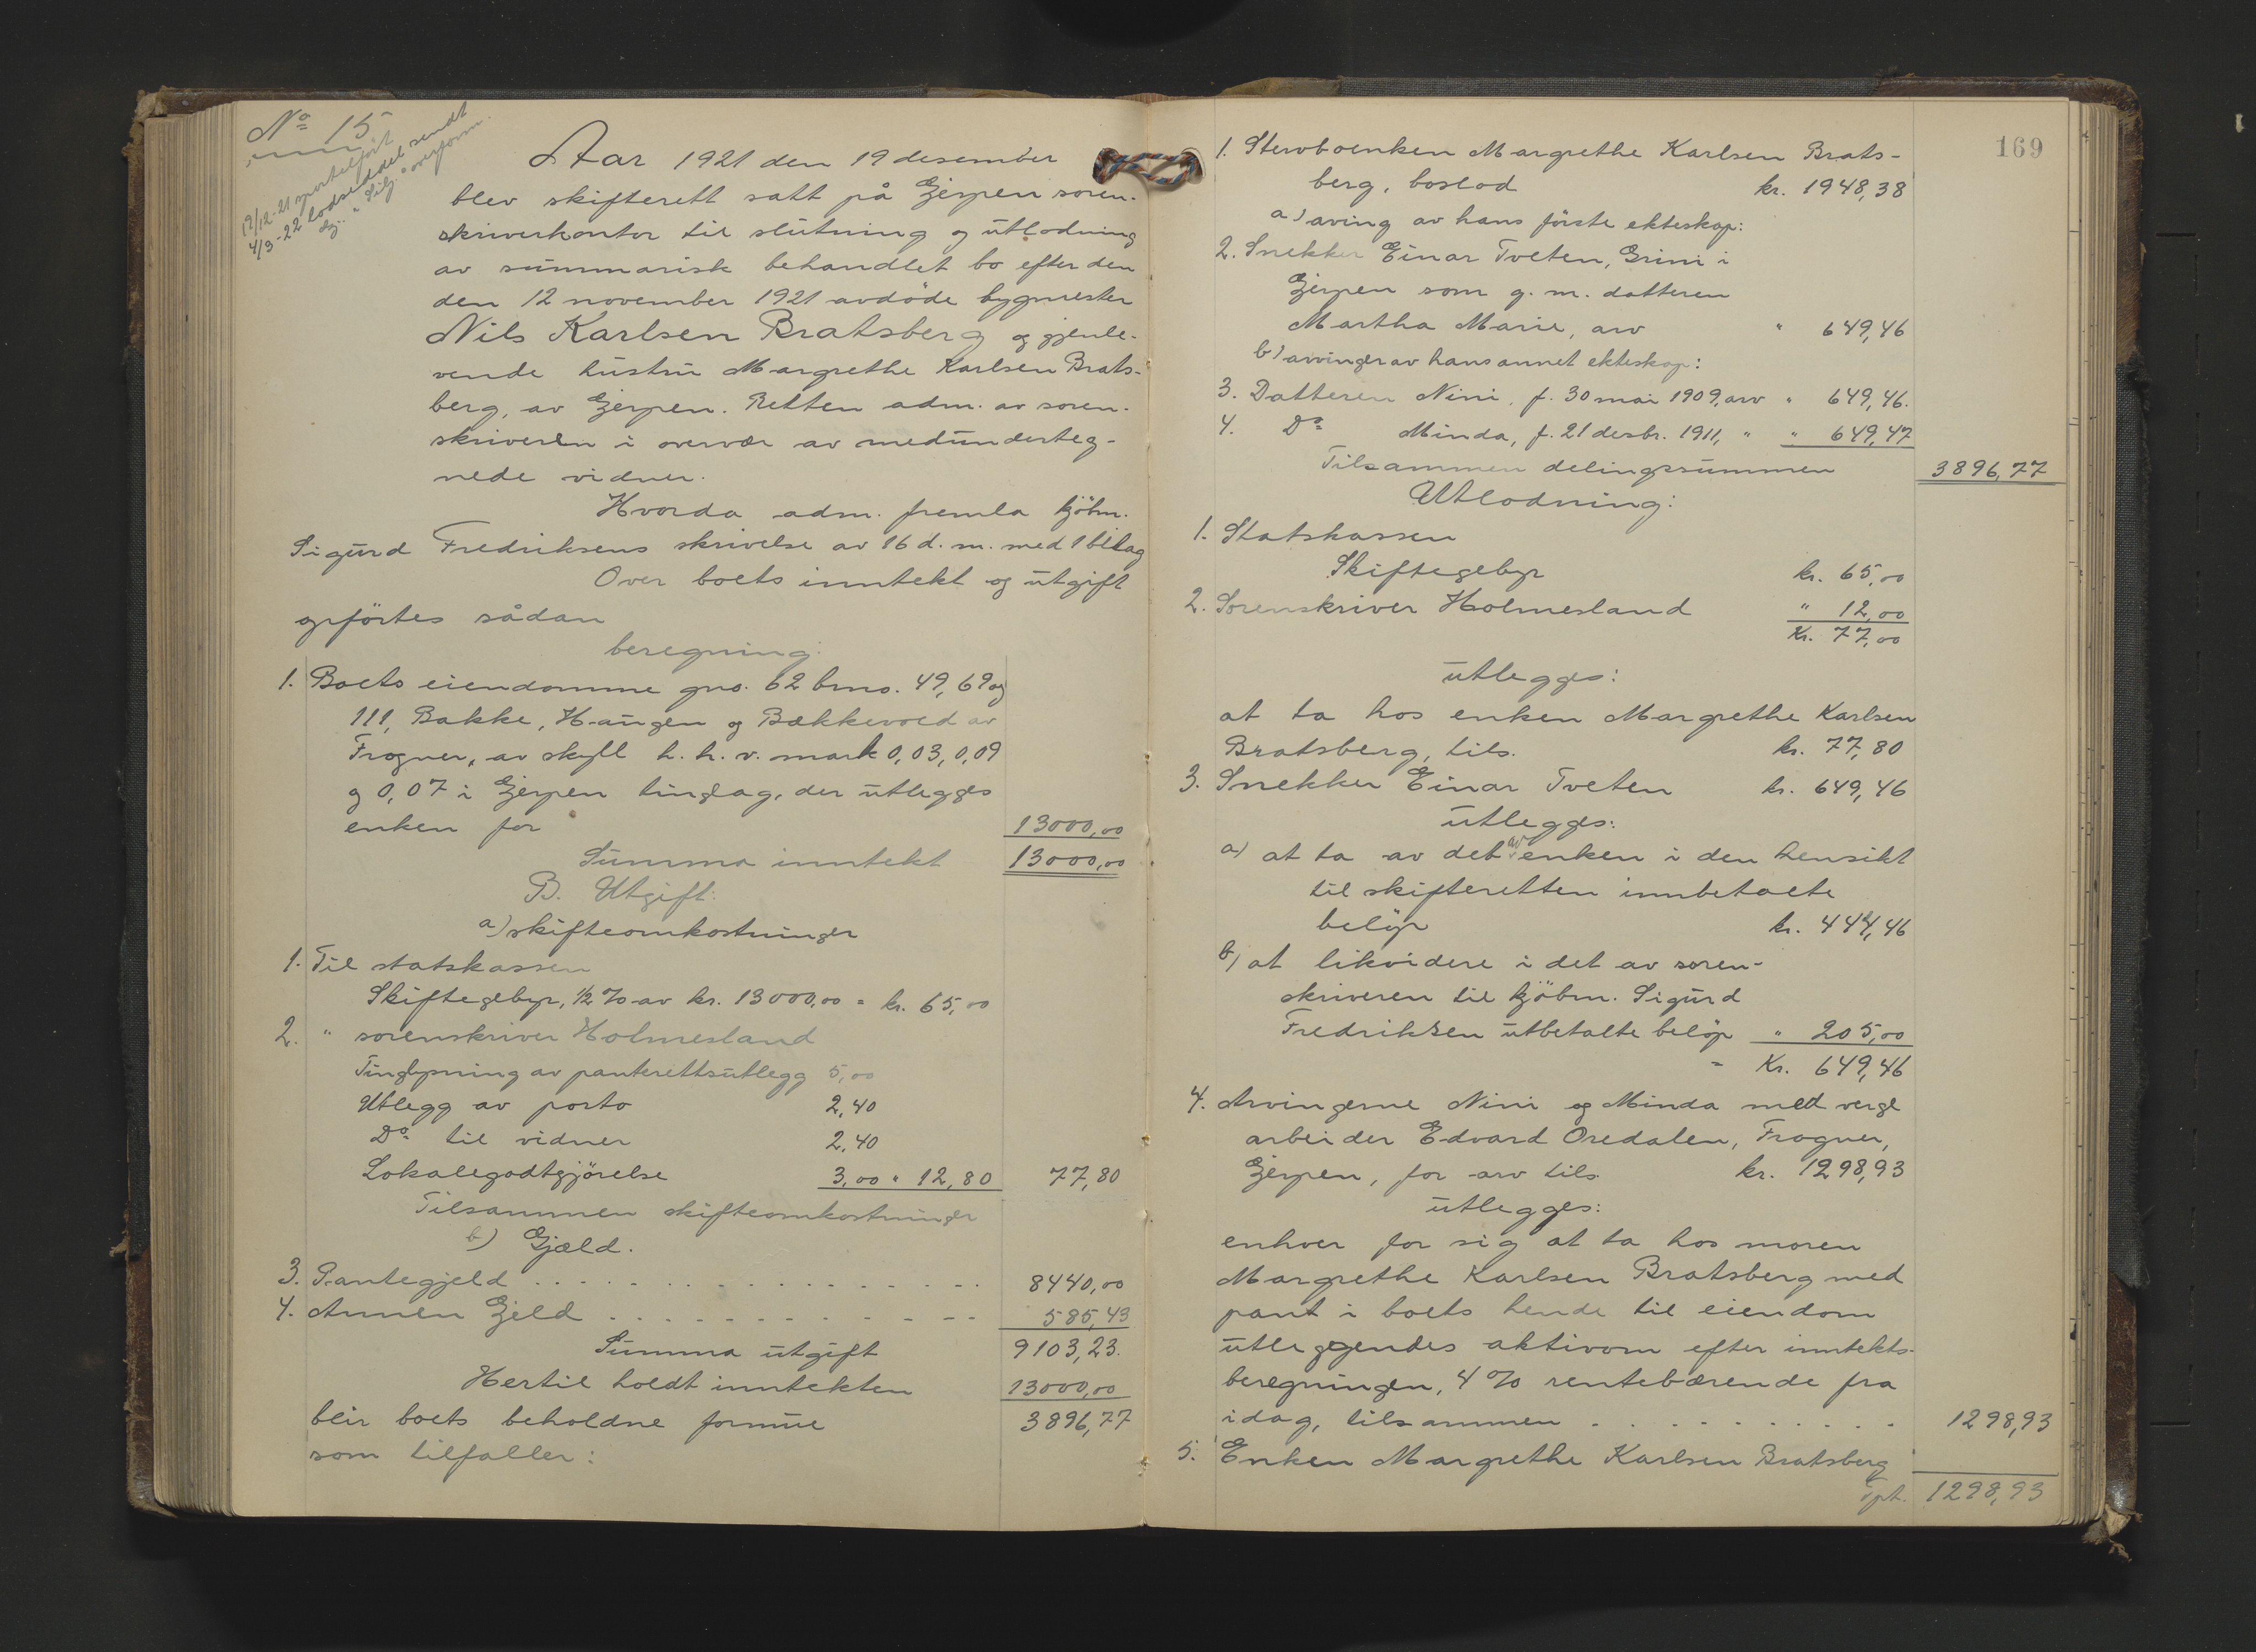 No 15
19/12-21 sportelført
4/3-22 lodseddel sendt
Gj. Slig. overform.
Aar 1921 den 19 desember
blev skifterett satt på Gjerpen soren-
skriverkontor til slutning og utlodning
av summarisk behandlet bo efter den
den 12 november 1921 avdöde bygmester
Nils Karlsen Bratsberg og gjenle-
vende hustru Margrethe Karlsen Brats-
berg, av Gjerpen. Retten adm. av soren-
skriveren i overvær av medunderteg-
nede vidner.
Hvorda adm. fremla kjöbm.
Sigurd Fredriksens skrivelse av 16 d. m. med 1 bilag
Over boets inntekt og utgift
opförtes sådan
beregning:
1. Boets eiendomme gno. 62 bno. 49, 69 og
111, Bakke, Haugen og Bækkevold av
Frogner, av skyll h. h. v. mark 0,03, 0,09
og 0,07 i Gjerpen tinglag, der utlegges
enken for 13000,00
Summa inntekt 13000,00
B. Utgift:
a) skifteomkostninger
1. Til statskassen
Skiftegebyr, 1/2 % av kr. 13000,00 = kr. 65,00
2. " sorenskriver Holmesland
Tinglysning av panterettsutlegg 5,00
Utlegg av porto 2,40
Do til vidner 2,40
Lokalegodtgjörelse 3,00 " 12,80 77,80
Tilsammen skifteomkostninger
b) Gjæld.
3. Pantegjeld . . . . . . . . . . 8440,00
4. Annen Gjeld . . . . . . . . . . 585,43
Summa utgift 9103,23.
Hertil holdt inntekten 13000,00
blir boets beholdne formue 3896,77
som tilfaller:
169
1. Stervboenken Margrethe Karlsen Brats-
berg, boslod kr. 1948,38
a) arving av hans förste ekteskap:
2. Snekker Einar Tveten, Grini i
Gjerpen som g. m. datteren
Martha Marie, arv " 649,46
b) arvinger av hans annet ekteskap:
3. Datteren Nini, f. 30 mai 1909, arv " 649,46.
4. Do Minda, f. 21 desbr. 1911, " " 649,47
Tilsammen delingssummen 3896,77
Utlodning:
1. Statskassen
Skiftegebyr kr. 65,00
2. Sorenskriver Holmesland " 12,00
Kr. 77,00
utlegges:
at ta hos enken Margrethe Karlsen
Bratsberg, tils. kr. 77,80
3. Snekker Einar Tveten kr. 649,46
utlegges:
a) at ta av det av enken i den hensikt
til skifteretten innbetalte
belöp kr. 444,46
b) at likvidere i det av soren-
skriveren til kjöbm. Sigurd
Fredriksen utbetalte belöp " 205,00
- Kr. 649,46
4. Arvingerne Nini og Minda med verge
arbeider Edvard Oredalen, Frogner,
Gjerpen, for arv tils. kr. 1298,93
utlegges:
enhver for sig at ta hos moren
Margrethe Karlsen Bratsberg med
pant i boets hende til eiendom
utleggendes aktivom efter inntekts-
beregningen, 4 % rentebærende fra
idag, tilsammen . . . . . . . . . . 1298,93
5. Enken Margrethe Karlsen Bratsberg
Tpt. 1298,93